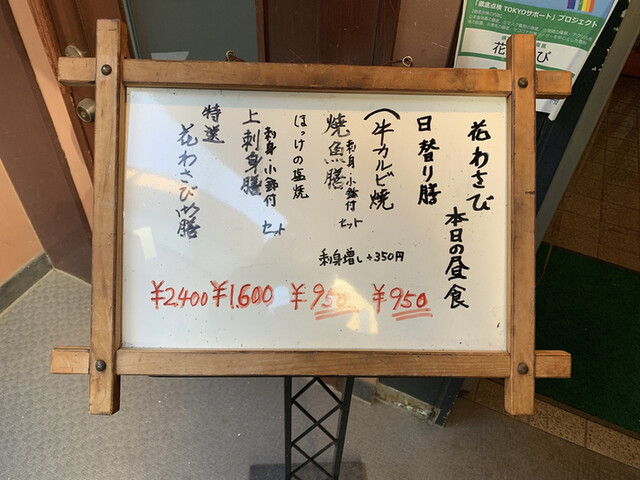 花わさび
本日の昼食
日替り膳
(牛カルビ焼
¥950
焼魚膳
刺身・小鉢付
セット
ほっけの塩焼
刺身増し+350円
¥950
上刺身膳
刺身・小鉢付
セット
¥1,600
特選
花わさび御膳
¥2,400
「徹底点検 TOKYOサポート」プロジェクト